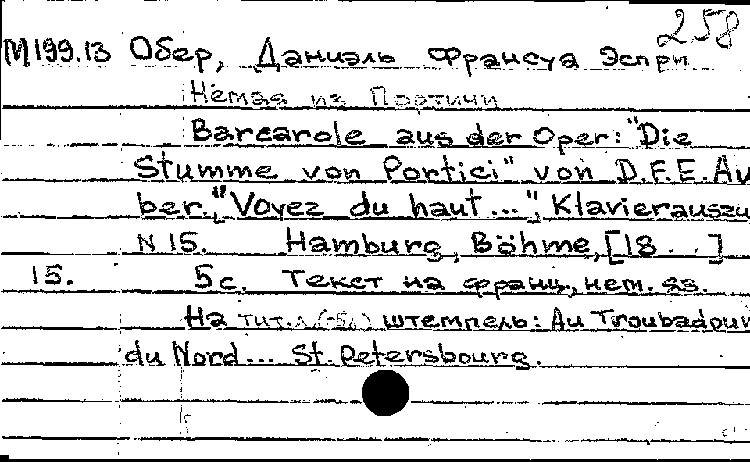 258
М199.13 Обер, Даниэль Франсуа Эспри
Немая из Портичи
Barcarole aus der Oper: "Die
Stumme von Portici" von D.F.E. Au
ber. "Voyez du haut...", Klavierauszu
N 15. Hamburg, Böhme, [18 . . ]
15. 5 с. Текст на франц., нем. яз.
На тит.л. штемпель: Au Troubadour
du Nord... St. Petersbourg.